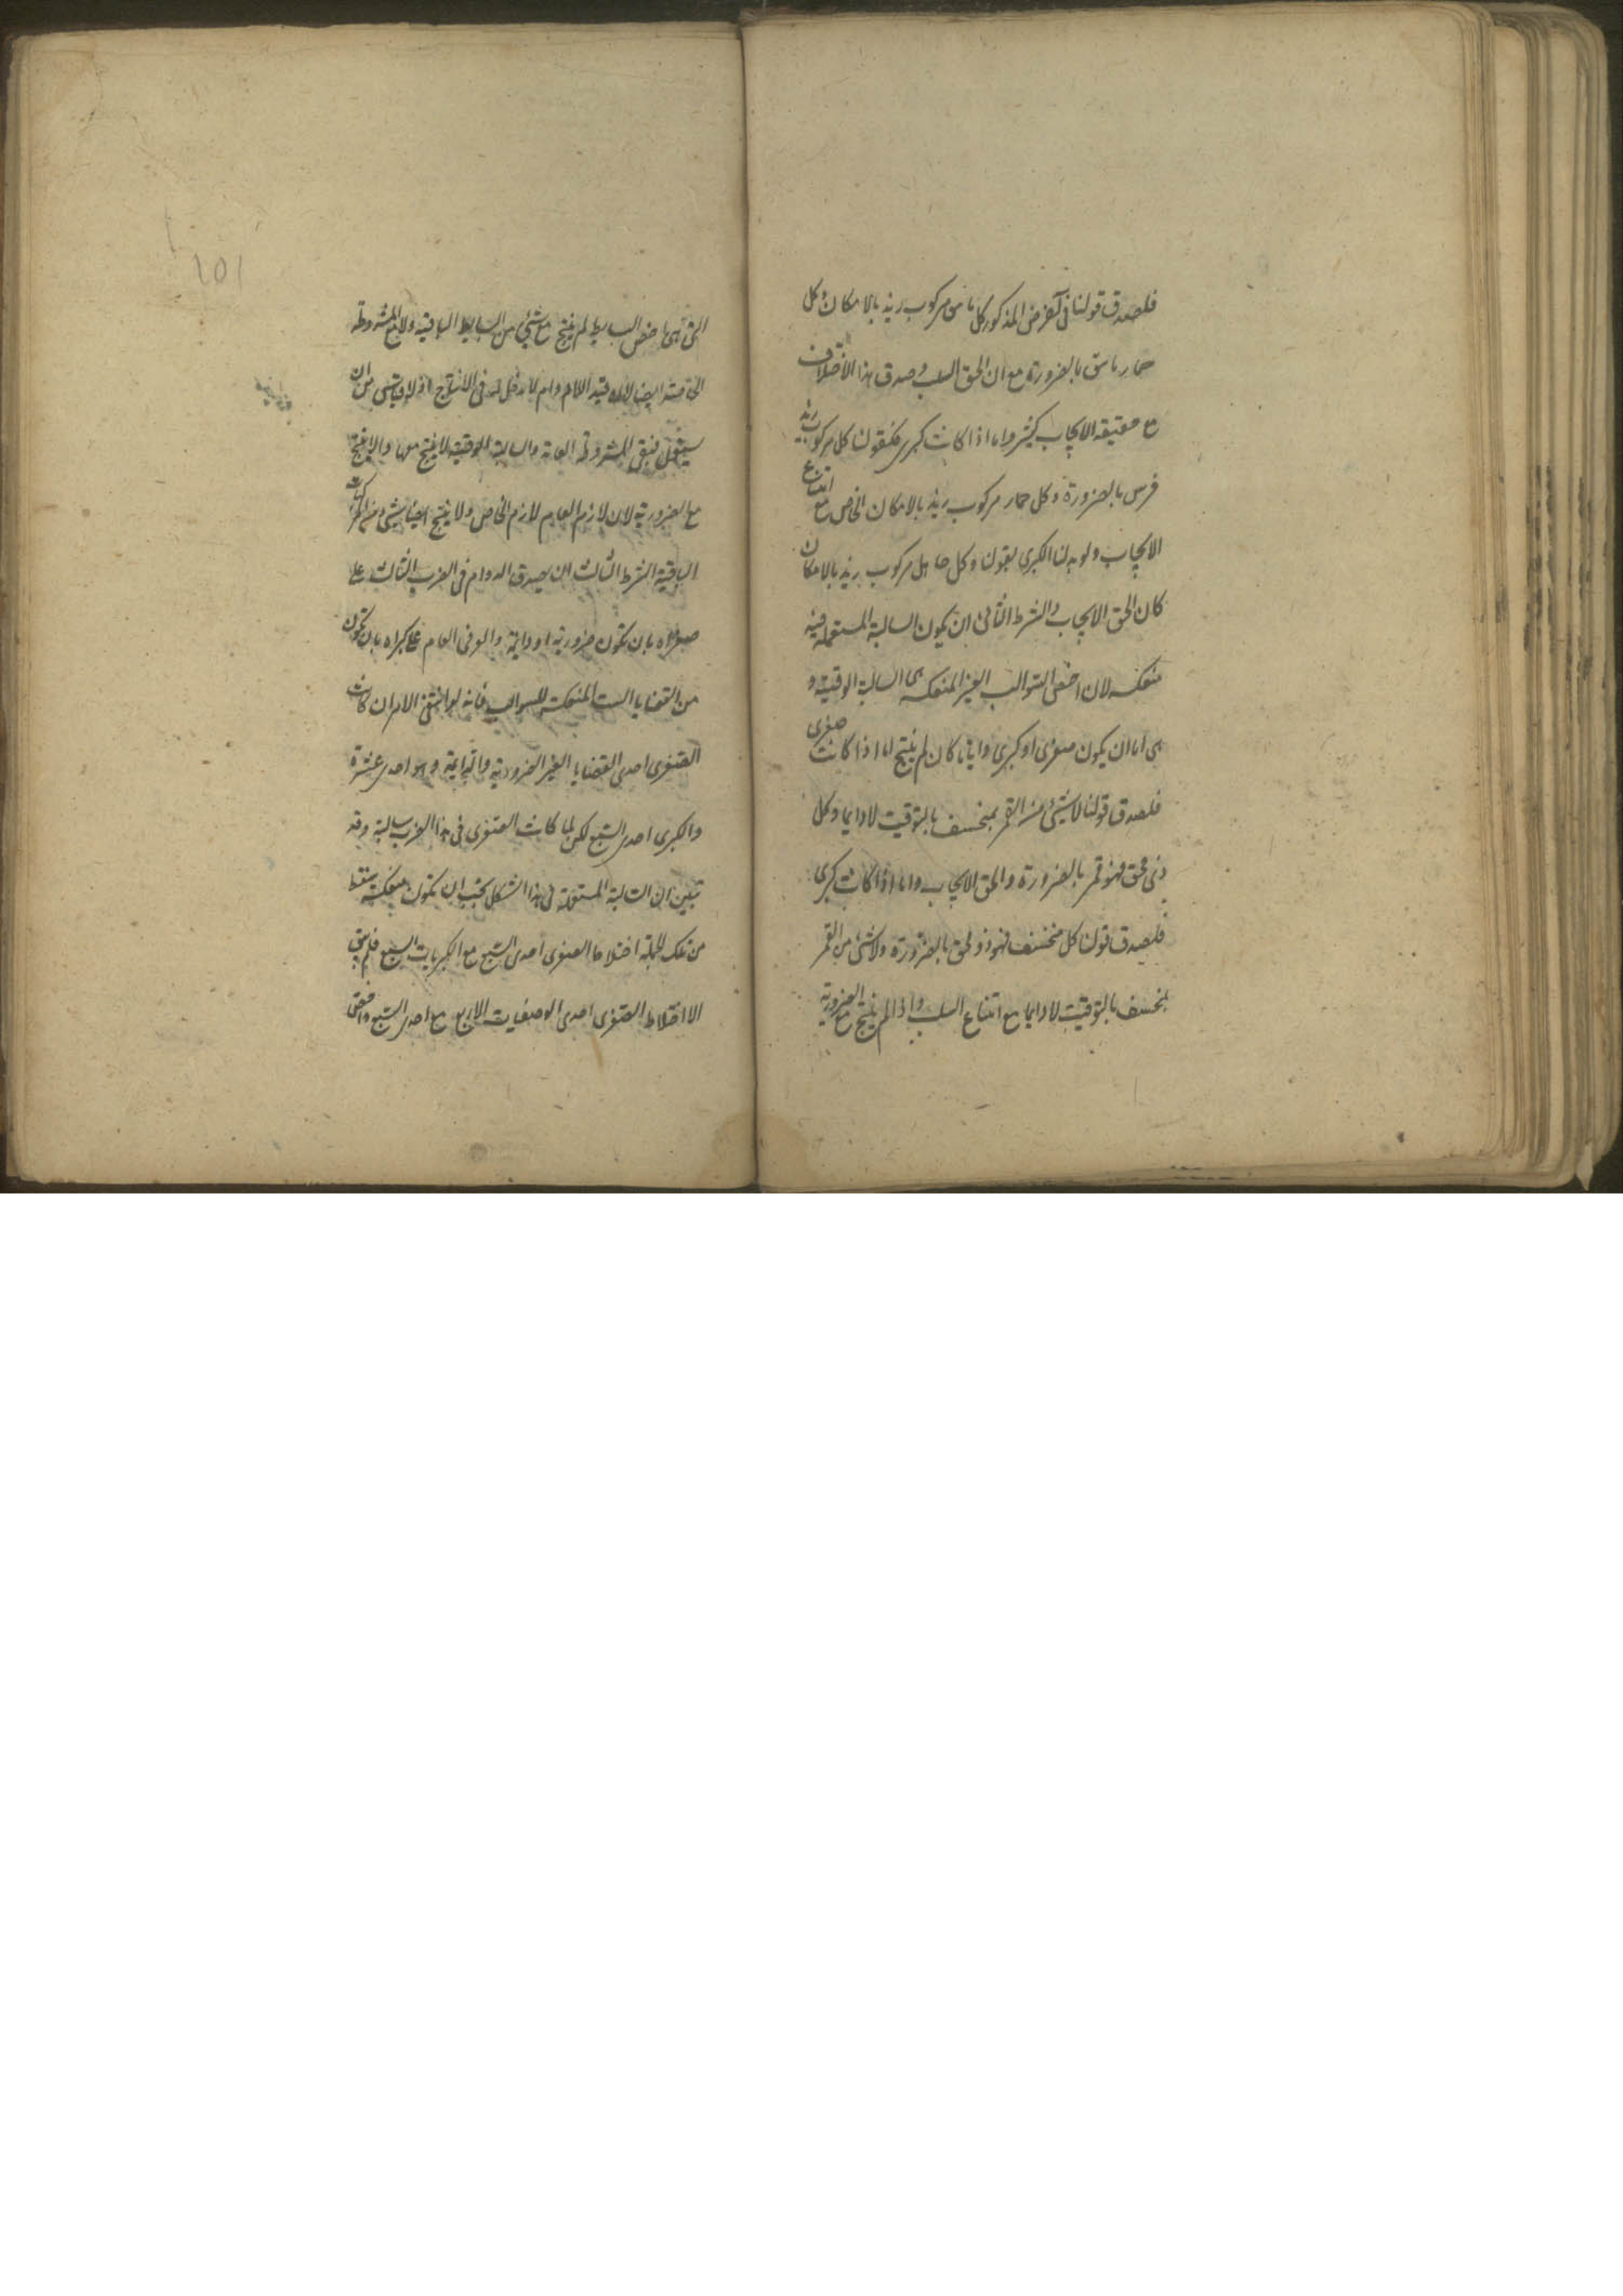 فلصدق قولنا فى الفرض المذكور كل ناهق مركوب زيد بالامكان وكل
حمار ناهق بالضرورة مع ان الحق السلب وصدق هذا الاختلاف
مع حقيقة الايجاب كثير واما اذا كانت كبرى فكقولنا كل مركوب زيد
فرس بالضرورة وكل حمار مركوب زيد بالامكان الخاص مع امتناع
الايجاب ولو بدلنا الكبرى بقولنا وكل صاهل مركوب زيد بالامكان
كان الحق الايجاب والشرط الثانى ان يكون السالبة المستعملة فيه
منعكسة لان اخص السوالب الغير المنعكسة هى السالبة الوقتية و
هى اما ان يكون صغرى او كبرى وايا ما كان لم ينتج اما اذا كانت صغرى
فلصدق قولنا لا شئ من القمر بمنخسف بالتوقيت لا دايما وكل
ذى محق فهو قمر بالضرورة والحق الايجاب واما اذا كانت كبرى
فلصدق قولنا كل منخسف فهو ذو محق بالضرورة ولا شئ من القمر
بمنخسف بالتوقيت لا دايما مع امتناع السلب واذا لم ينتج مع الضرورية
التى هى اخص البسايط لم ينتج مع شئ من البسايط الباقية ولا مع المشروطة
الخاصة ايضا لان قيد اللادوام لا دخل له فى الانتاج اذ لا قياس من
فبقى المشروطة العامة والسالبة الوقتية لا ينتج معها والا لانتج
مع الضرورية لان لازم العام لازم الخاص ولا ينتج ايضا شئ من المركبات
الباقية الشرط الثالث ان يصدق الدوام فى الضرب الثالث على
صغراه بان تكون ضرورية او دايمة والعرفى العام على كبراه بان تكون
من القضايا الست المنعكسة السوالب فانه لو انتفى الامران كانت
الصغرى احدى القضايا الغير الضرورية والدايمة وهو احدى عشرة
والكبرى احدى السبع لكن لما كانت الصغرى فى هذا الضرب سالبة وقد
تبين ان السالبة المستعملة فى هذا الشكل يجب ان تكون منعكسة سقط
من تلك الجملة اختلاط الصغرى احدى السبع مع الكبريات السبع فلم يبق
الا اختلاط الصغرى احدى الوصفيات الاربع مع احدى السبع واخص
101